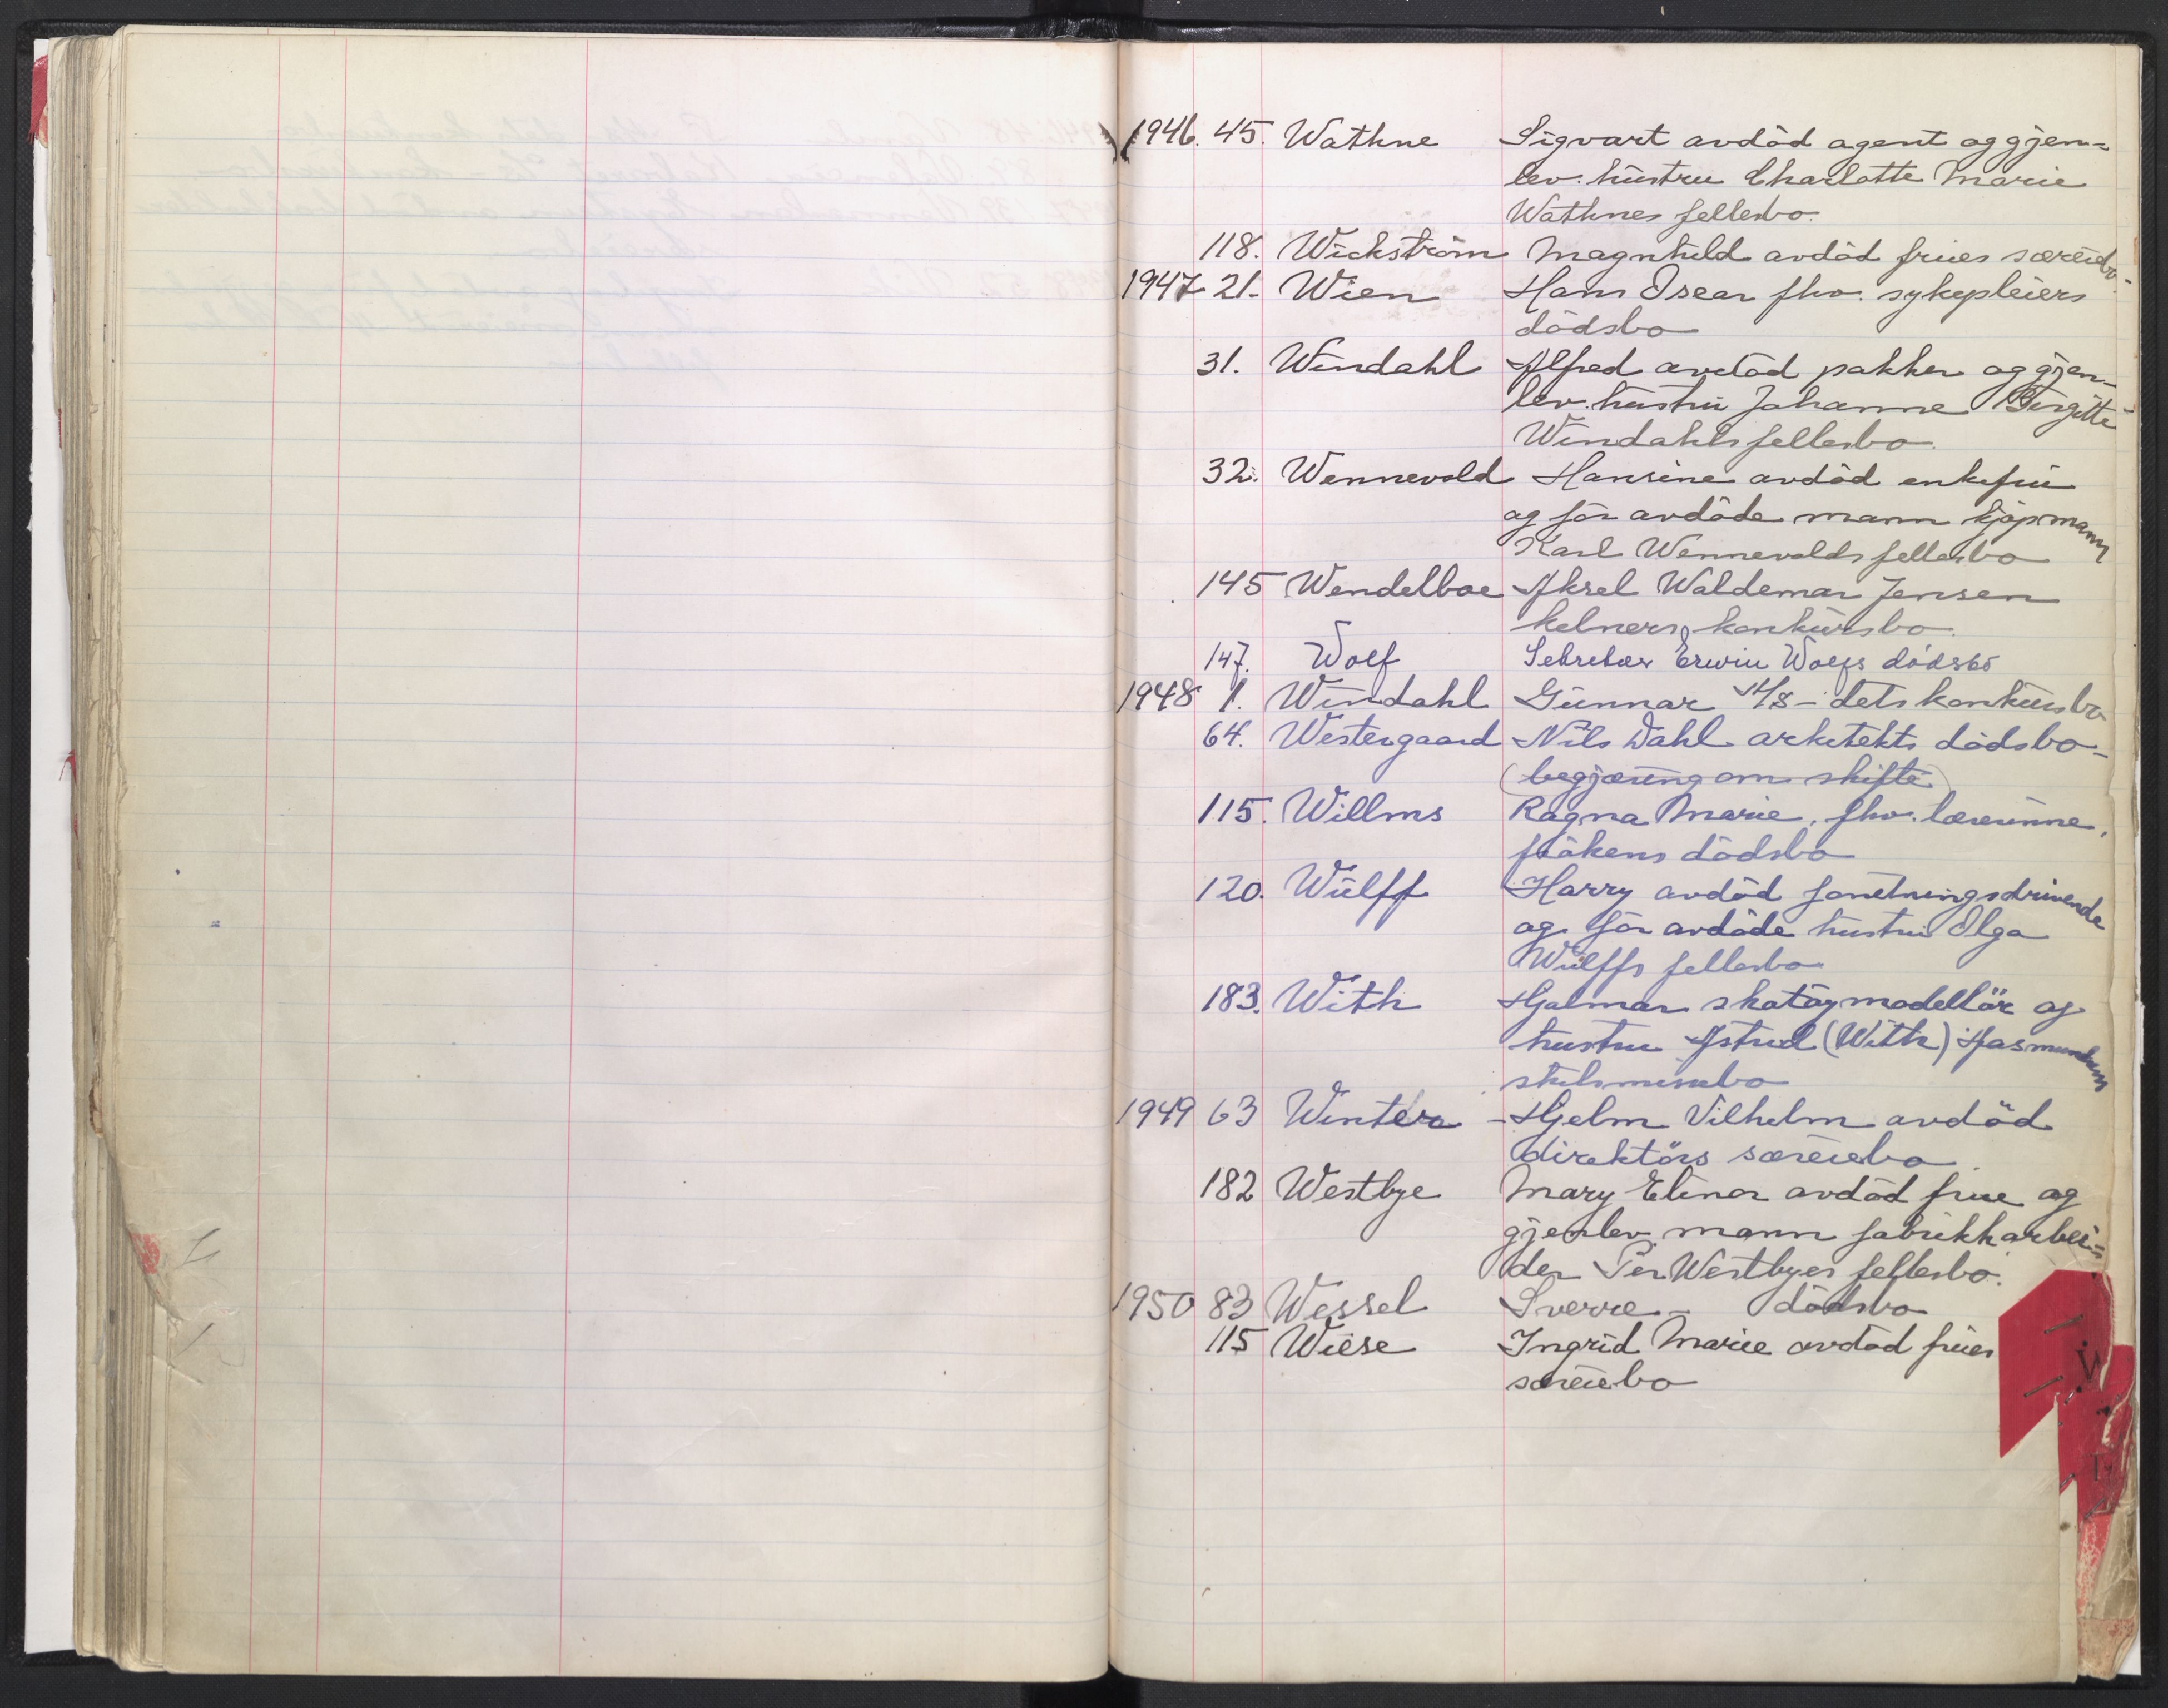 1946. 45. Wathne Sigvart avdöd agent og gjen-
lev. hustru Charlotte Marie
Wathnes fellesbo.
118. Wickström Magnhild avdöd frues særeiebo.
1947 21. Wien Hans Oscar fhv. sykepleiers
dödsbo
31. Windahl Alfred avdöd pakker og gjen-
lev. hustru Johanne Birgitte
Windahls fellesbo.
32. Wennevold Hansine avdöd enkefru
og för avdöde mann kjöpmann
Karl Wennevolds fellesbo
145 Wendelboe Aksel Waldemar Jensen
kelners konkursbo.
147. Wolf Sekretær Erwin Wolfs dödsbo
1948 1. Windahl Gunnar A/S - dets konkursbo
64. Westergaard Nils Dahl arkitekts dödsbo-
(begjæring om skifte)
115. Willms Ragna Marie, fhv. lærerinne,
frökens dödsbo
120. Wulff Harry avdöd forretningsdrivende
og för avdöde hustru Olga
Wulffs fellesbo
183. With Hjalmar skotöymodellör og
hustru Astrid (With)
skilsmissebo
1949 63 Winters - Hjelm Vilhelm avdöd
direktörs særeiebo
182 Westbye Mary Elinor avdöd frue og
gjenlev. mann fabrikkarbei-
der Per Westbyes fellesbo.
1950 83 Wessel Sverre - dödsbo
115 Wiese Ingrid Marie avdöd frues
særeiebo
W